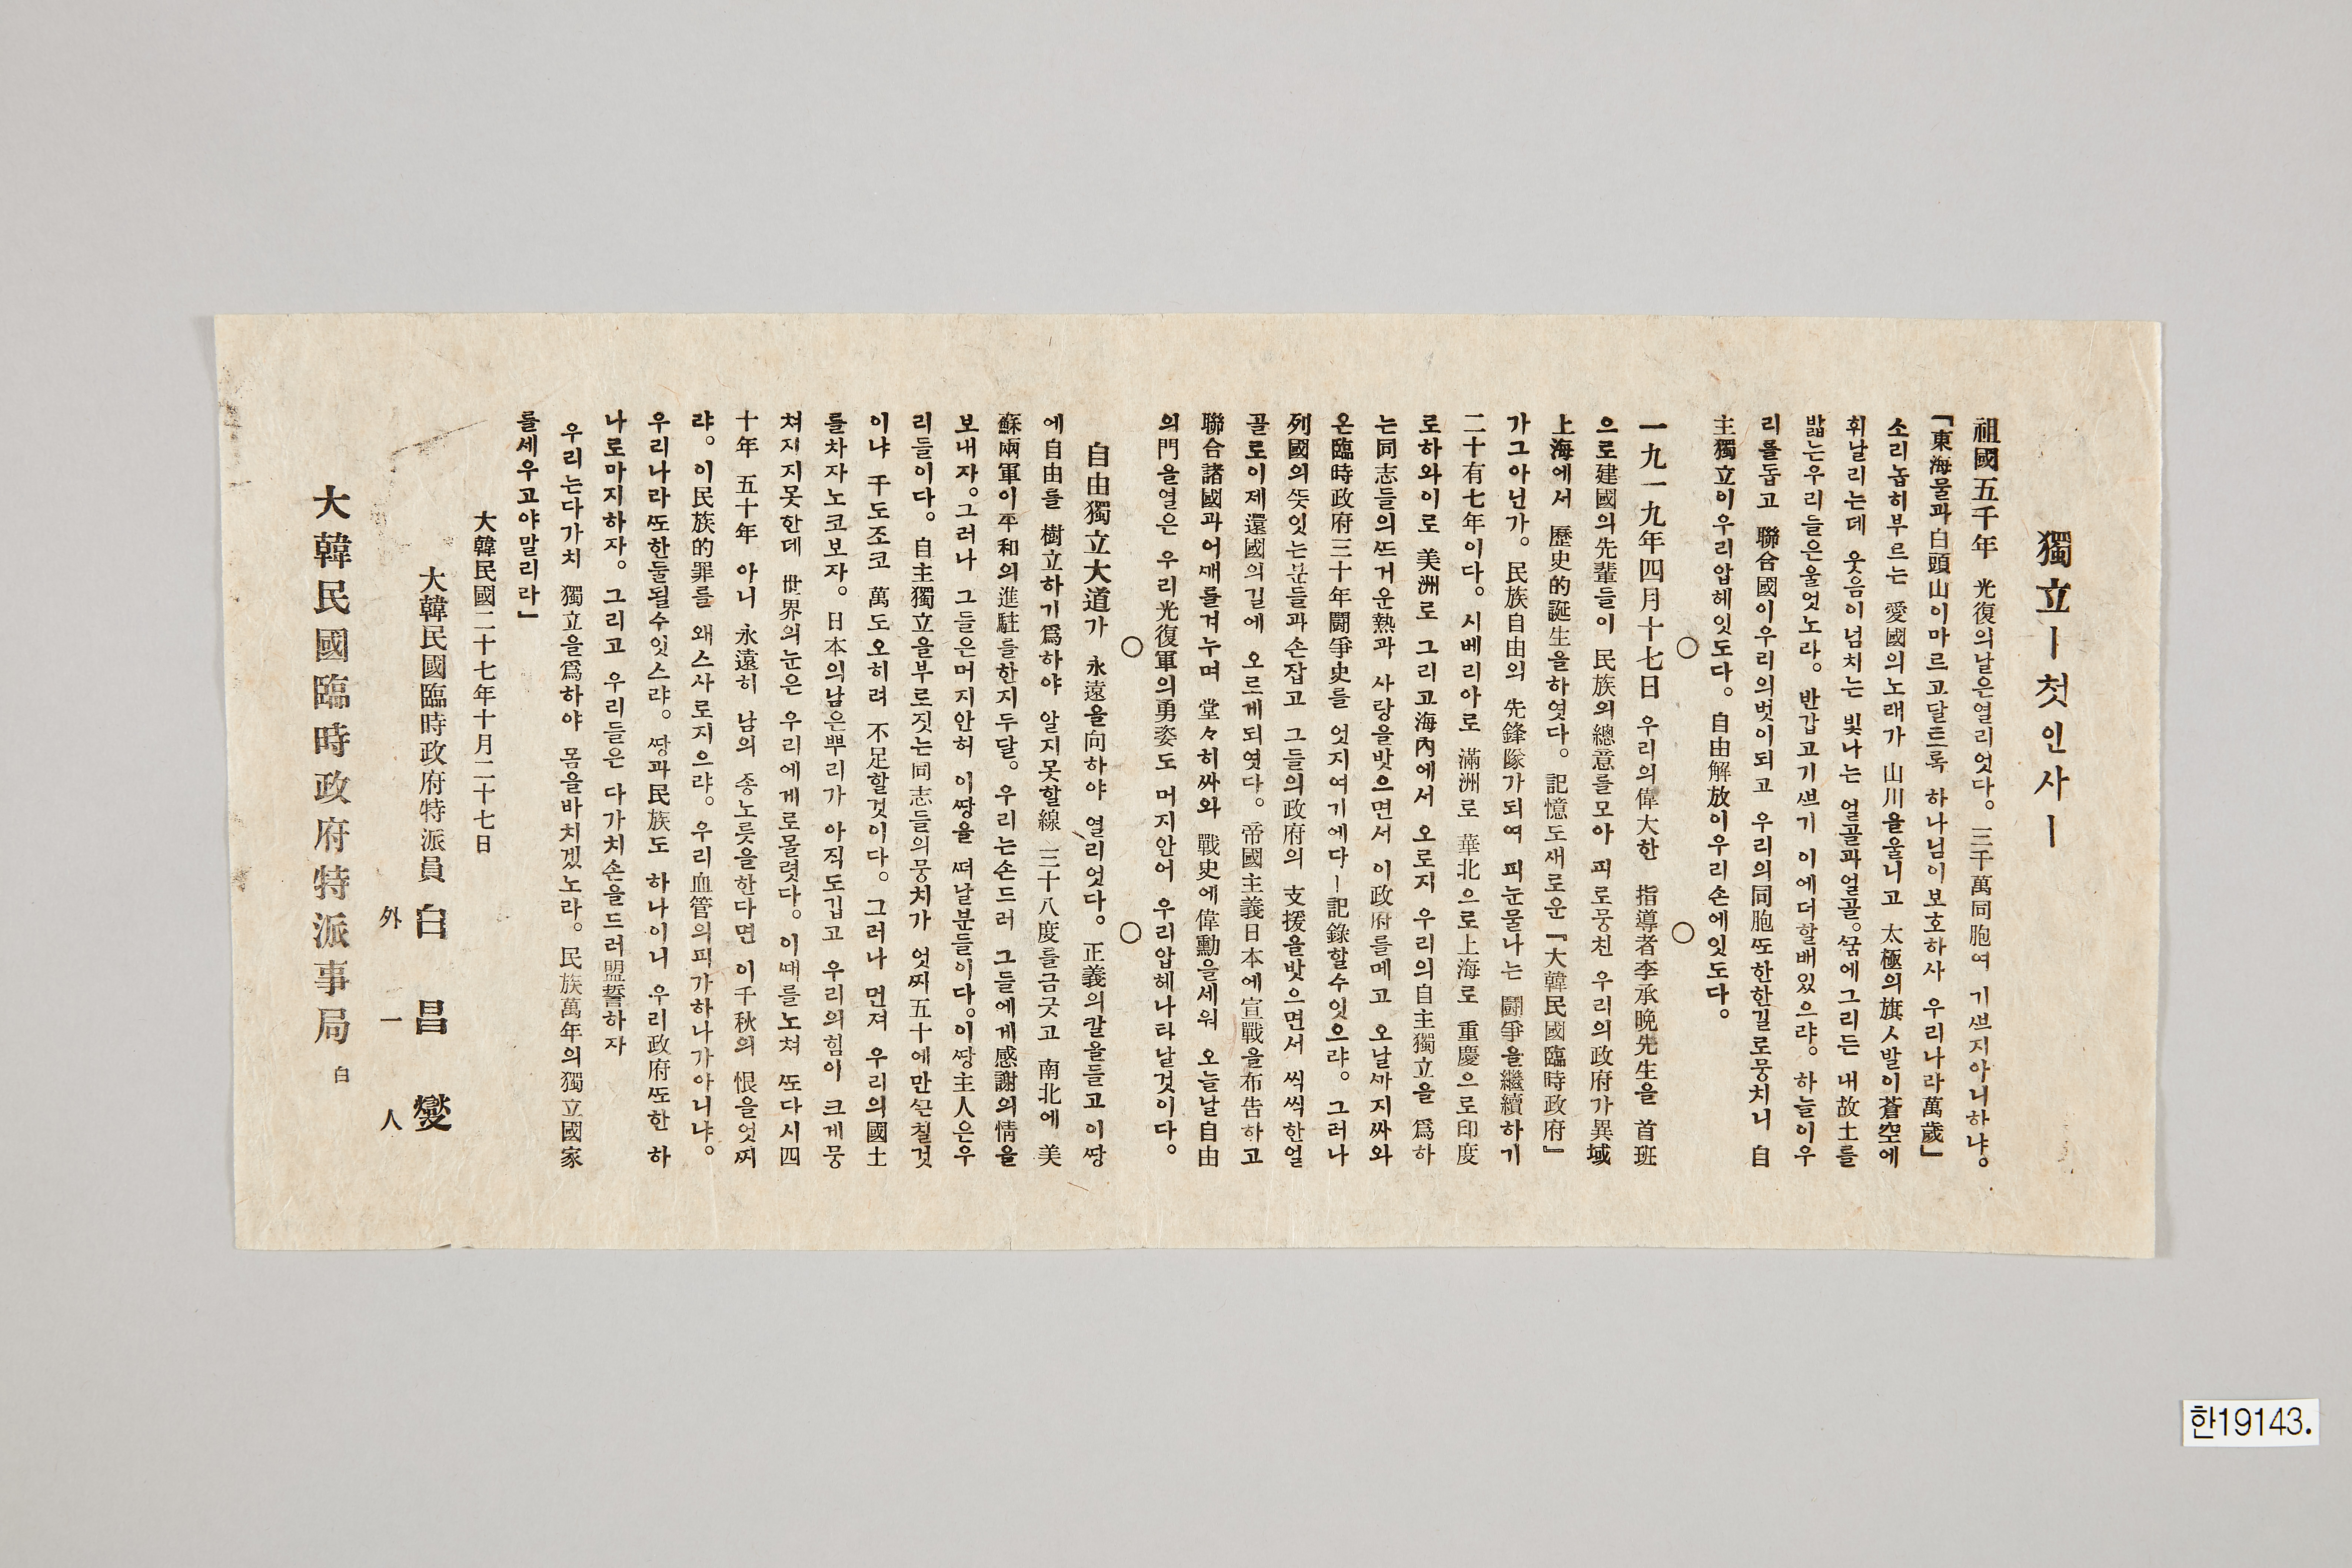 獨立ー첫인사ー
祖國五千年 光復의날은열리엇다。 三千萬同胞여 기쁘지아니하냐。
「東海물과白頭山이마르고달튼록 하나님이보호하사 우리나라萬歲」
소리놉히부르는 愛國의노래가 山川을울니고 太極의旗ㅅ발이蒼空에
휘날리는데 웃음이넘치는 빛나는 얼골과얼골。꿈에그리든 내故土를
밟는우리들은울엇노라。 반갑고기쁘기 이에더할배있으랴。 하늘이우
리를돕고 聯合國이우리의벗이되고 우리의同胞또한한길로뭉치니 自
主獨立이우리압헤잇도다。 自由解放이우리손에잇도다。
○ ○
一九一九年四月十七日 우리의偉大한 指導者李承晩先生을 首班
으로建國의先輩들이 民族의總意를모아 피로뭉친 우리의政府가異域
上海에서 歷史的誕生을하엿다。 記憶도새로운「大韓民國臨時政府」
가그아닌가。 民族自由의 先鋒隊가되여 피눈물나는 鬪爭을繼續하기
二十有七年이다。 시베리아로 滿洲로 華北으로上海로 重慶으로印度
로하와이로 美洲로 그리고海內에서 오로지 우리의自主獨立을 爲하
는同志들의뜨거운熱과 사랑을밧으면서 이政府를메고 오날까지싸와
온臨時政府三十年鬪爭史를 엇지여기에다ー記錄할수잇으랴。 그러나
列國의뜻잇는분들과손잡고 그들의政府의 支援을밧으면서 씩씩한얼
골로이제還國의길에 오르게되엿다。 帝國主義日本에宣戰을布告하고
聯合諸國과어깨를겨누며 堂々히싸와 戰史에偉勳을세워 오늘날自由
의門을열은 우리光復軍의勇姿도 머지안어 우리압헤나타날것이다。
○ ○
自由獨立大道가 永遠을向하야 열리엇다。 正義의칼을들고이땅
에自由를 樹立하기爲하야 알지못할線 三十八度를금긋고 南北에 美
蘇兩軍이平和의進駐를한지두달。 우리는손드러 그들에게感謝의情을
보내자。그러나 그들은머지안허 이땅을 떠날분들이다。이땅主人은우
리들이다。 自主獨立을부로짓는同志들의뭉치가 엇찌五十에만끈칠것
이냐 千도조코 萬도오히려 不足할것이다。 그러나 먼져 우리의國土
를차자노코보자。 日本의남은뿌리가 아직도깁고 우리의힘이 크게뭉
쳐지지못한데 世界의눈은 우리에게로몰렷다。이때를노쳐 또다시四
十年 五十年 아니 永遠히 남의 종노릇을한다면 이千秋의 恨을엇찌
랴。 이民族的罪를 왜스사로지으랴。 우리血管의피가하나가아니냐。
우리나라또한둘될수잇스랴。 땅과民族도 하나이니 우리政府또한 하
나로마지하자。 그리고 우리들은 다가치손을드러盟誓하자
우리는다가치 獨立을爲하야 몸을바치겠노라。 民族萬年의獨立國家
를세우고야말리라」
大韓民國二十七年十月二十七日
大韓民國臨時政府特派員 白昌燮
外一人
大韓民國臨時政府特派事局 白
한19143.